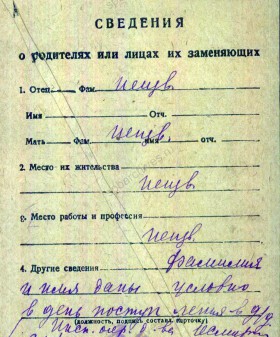 СВЕДЕНИЯ
о родителях или лицах их заменяющих
1. Отец Фам. неизв.
Имя Отч.
Мать Фам. неизв. имя отч.
2. Место их жительства
неизв.
3. Место работы и профессия
неизв.
4. Другие сведения фамилия
и имя даны условно
в день поступления в д/д
(должность, подпись состав. карточку)